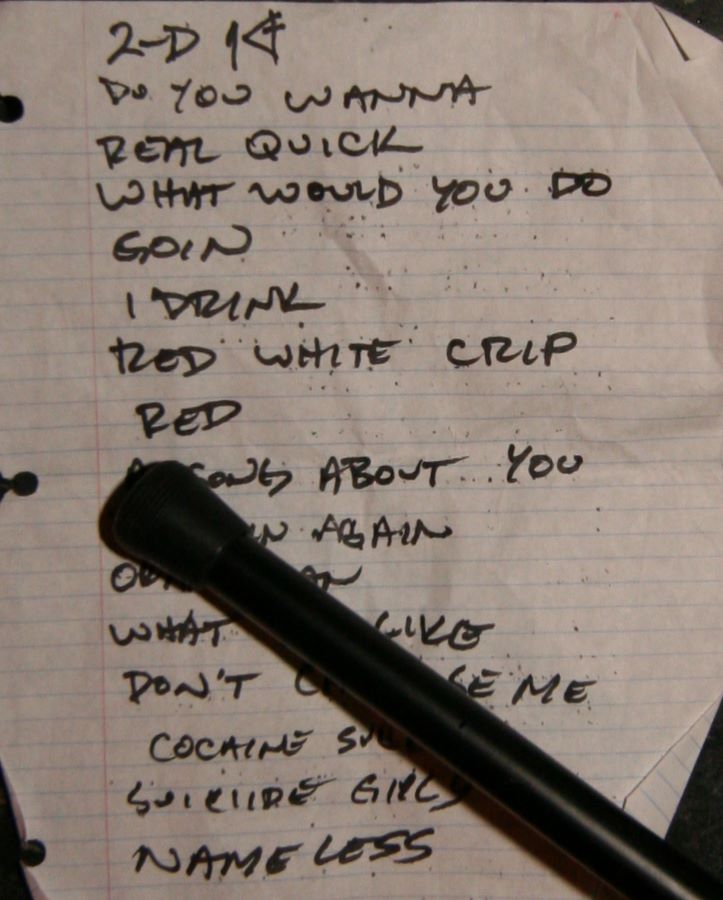 2-D
DO YOU WANNA
REAL QUICK
WHAT WOULD YOU DO
GOIN
I DRINK
RED WHITE CRIP
RED
SONG ABOUT YOU
AGAIN
WHAT LIKE
DON'T ME
COCAINE
SUICIIDE GIRLS
NAMELESS